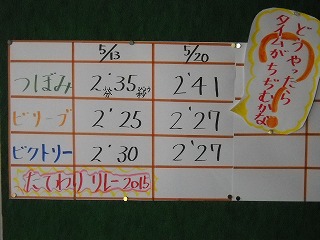 5/13 5/20
つぼみ 2'35 2'41
ビリーブ 2'25 2'27
ビクトリー 2'30 2'27
たてわりリレー2015
どうやったら
タイムが
ちぢむかな?